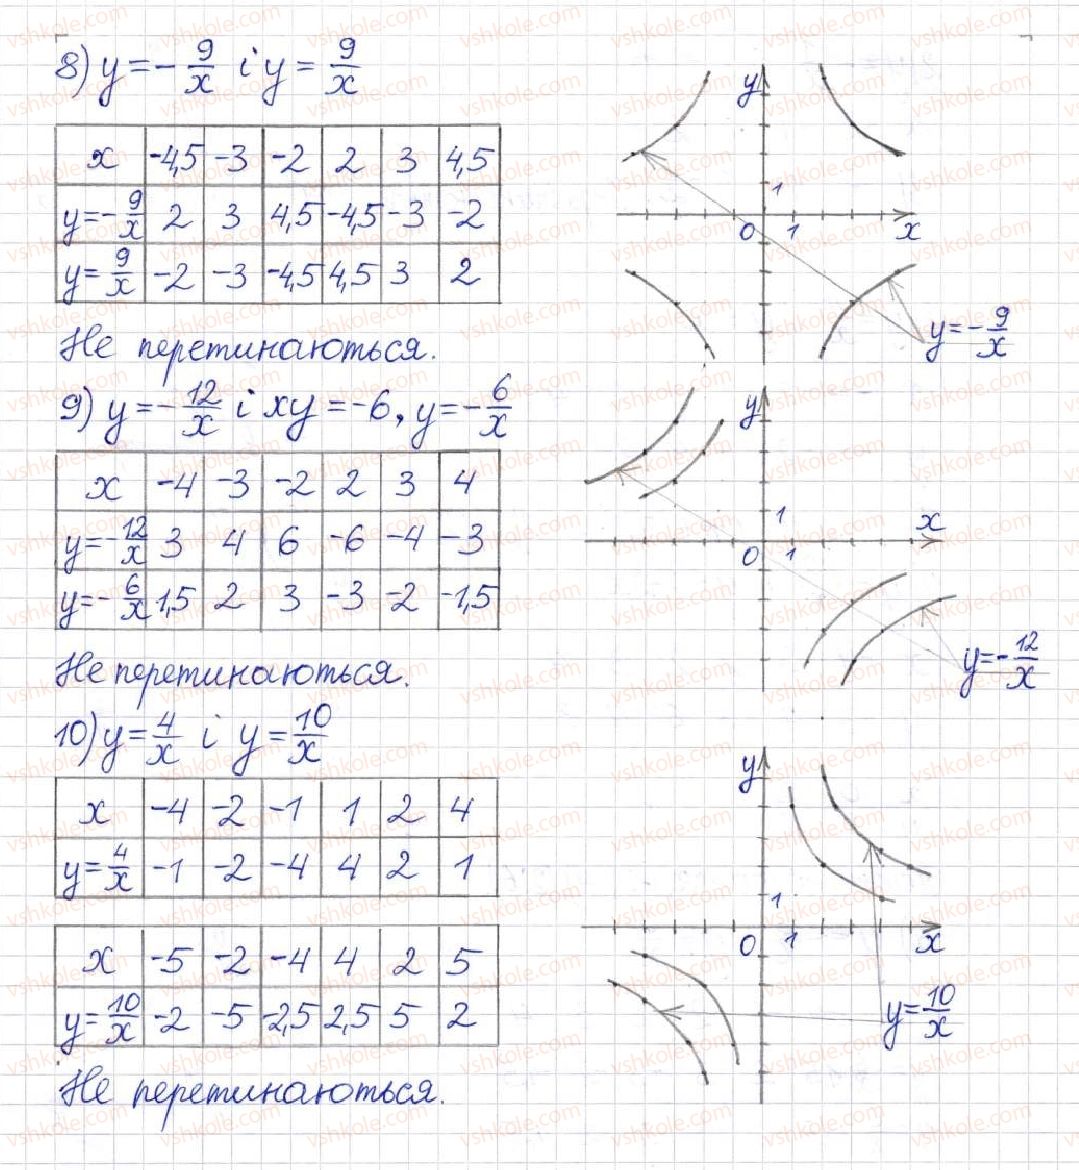 8) y = -9/x і y = 9/x
x -4,5 -3 -2 2 3 4,5
y=-9/x 2 3 4,5 -4,5 -3 -2
y=9/x -2 -3 -4,5 4,5 3 2
Не перетинаються.
y
1
0 1 x
y=-9/x
9) y = -12/x і xy = -6, y = -6/x
x -4 -3 -2 2 3 4
y=-12/x 3 4 6 -6 -4 -3
y=-6/x 1,5 2 3 -3 -2 -1,5
Не перетинаються.
y
1
x
0 1
y=-12/x
10) y = 4/x і y = 10/x
x -4 -2 -1 1 2 4
y=4/x -1 -2 -4 4 2 1
x -5 -2 -4 4 2 5
y=10/x -2 -5 -2,5 2,5 5 2
Не перетинаються.
y
1
0 1 x
y=10/x
vshkole.com